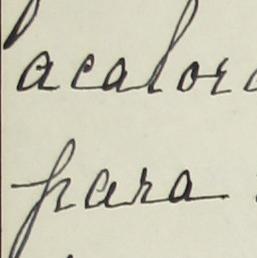 acalor
para